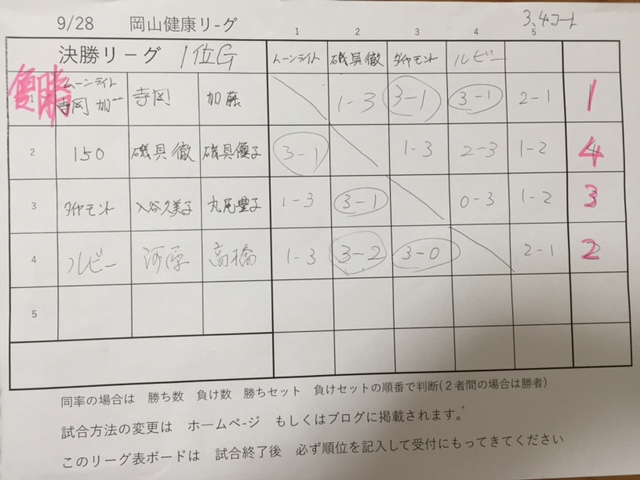 9/28 岡山健康リーグ 3,4コート
1 2 3 4 5
決勝リーグ 1位G ムーンライト 磯具徹 ダイヤモンド ルビー
優勝 ムーンライト 寺岡 加藤 1-3 3-1 3-1 2-1 1
2 150 磯具徹 磯具優子 3-1 1-3 2-3 1-2 4
3 ダイヤモンド 入谷久美子 丸尾豊子 1-3 3-1 0-3 1-2 3
4 ルビー 河原 高橋 1-3 3-2 3-0 2-1 2
5
同率の場合は 勝ち数 負け数 勝ちセット 負けセットの順番で判断(2者間の場合は勝者)
試合方法の変更は ホームページ もしくはブログに掲載されます。
このリーグ表ボードは 試合終了後 必ず順位を記入して受付にもってきてください